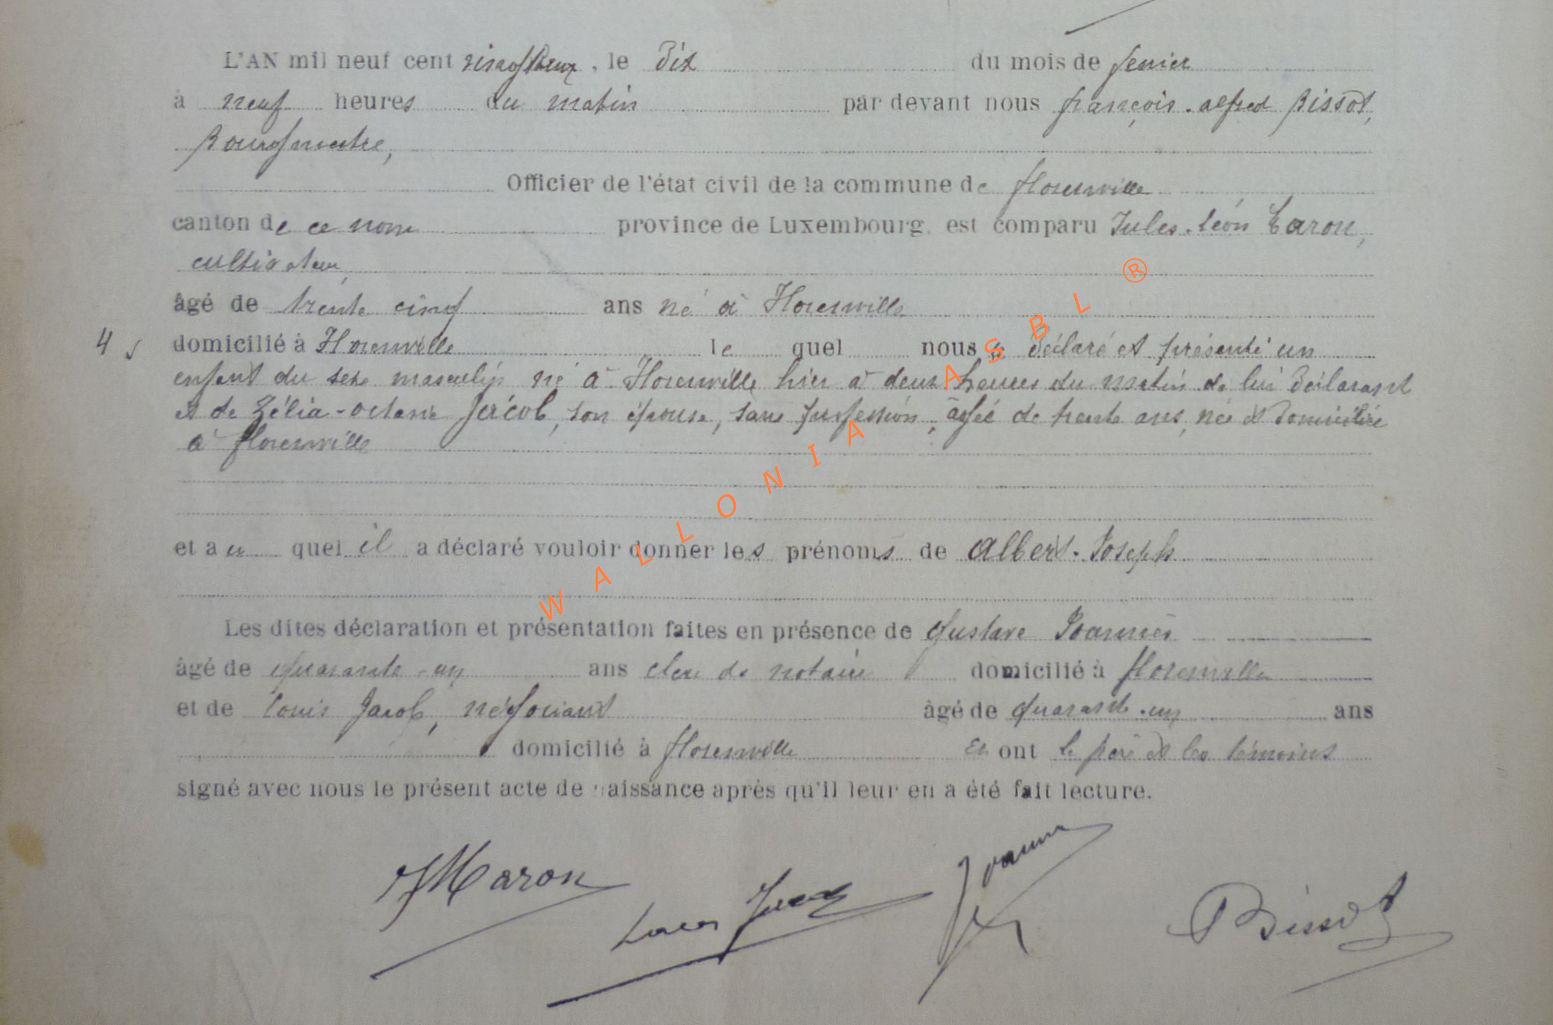 L'AN mil neuf cent vingt deux, le dix du mois de fevrier
à neuf heures du matin par devant nous françois-alfred Bissot,
Bourgmestre,
Officier de l'état civil de la commune de florenville
canton de ce nom province de Luxembourg. est comparu Jules-Léon
cultivateur,
âgé de trente cinq ans né à Florenville
4
domicilié à Florenville le quel nous a déclaré et présenté un
enfant du sexe masculin né à Florenville hier à deux heures du matin de lui déclarant
et de Zélia-octavie Jacob, son épouse, sans profession, âgée de trente ans, née et domiciliée
à florenville
et au quel il a déclaré vouloir donner les prénoms de Albert-Joseph
Les dites déclaration et présentation faites en présence de Gustave
âgé de quarante-un ans clerc de notaire domicilié à florenville
et de Louis Jacob, négociant âgé de quarante-un ans
domicilié à florenville Et ont le père et les témoins
signé avec nous le présent acte de naissance après qu'il leur en a été fait lecture.
JMaron Louis Jacob Bissot
WALLONIA ASBL ®